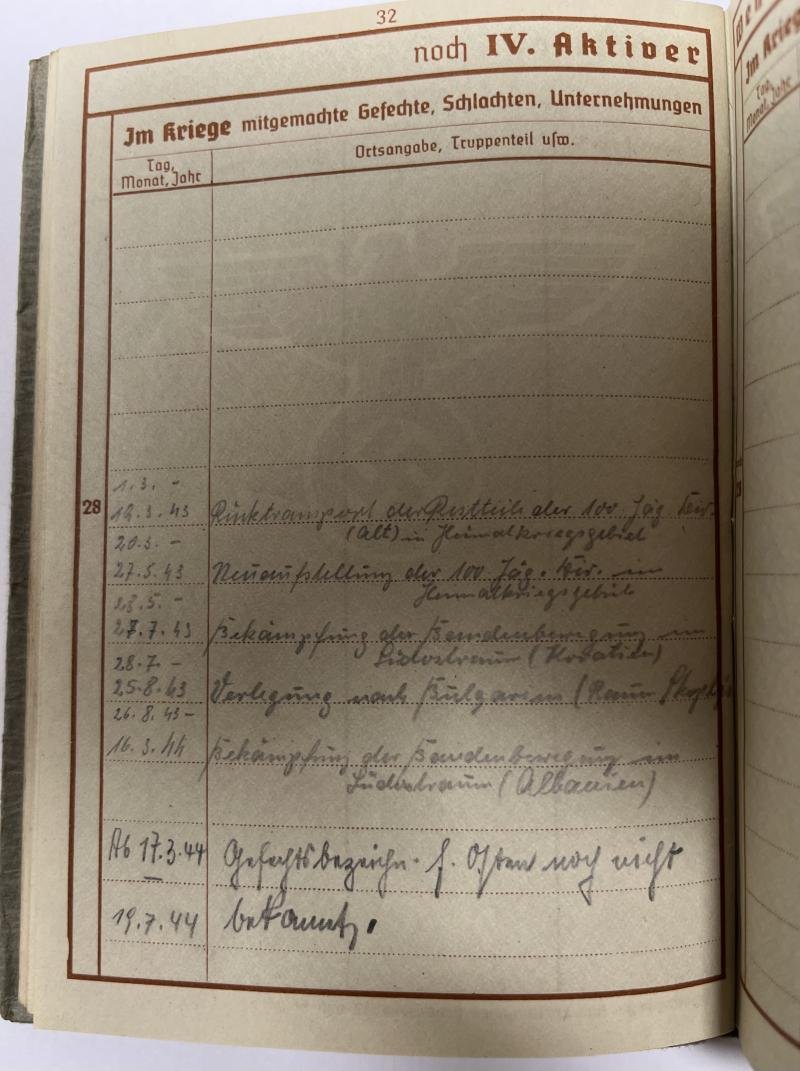 32
noch IV. Aktiver
Im Kriege mitgemachte Gefechte, Schlachten, Unternehmungen
Tag, Monat, Jahr
Ortsangabe, Truppenteil usw.
28
1.3. -
19.3.43 Rücktransport der Restteile der 100. Jäg. Div.
(alt) in Heimatkriegsgebiet
20.3. -
27.5.43 Neuaufstellung der 100. Jäg. Div. im
Heimatkriegsgebiet
28.5. -
27.7.43 Bekämpfung der Bandenbewegung im
Südostraum (Kroatien)
28.7. -
25.8.43 Verlegung nach Bulgarien (Raum
26.8.43 -
16.3.44 Bekämpfung der Bandenbewegung im
Südostraum (Albanien)
Ab 17.3.44 Gefechtsbezeichn. f. Osten noch nicht
19.7.44 bekannt.